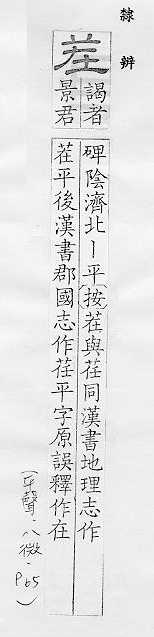 隸辨
茬
謁者
景君
碑陰濟北丨平按茬與茌同漢書地理志作
茬平後漢書郡國志作茌平字原誤釋作在
(平聲．八微．P65)